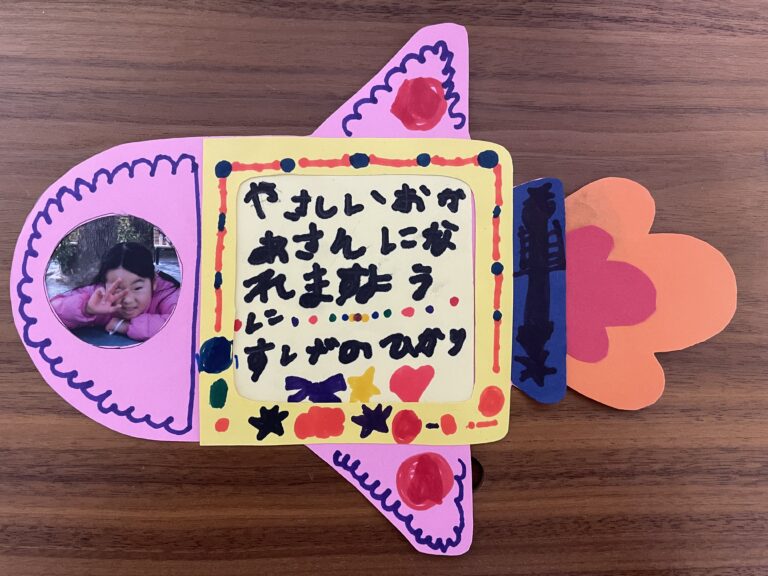 やさしいおか
あさんにな
れますよう
に
すげのひかり